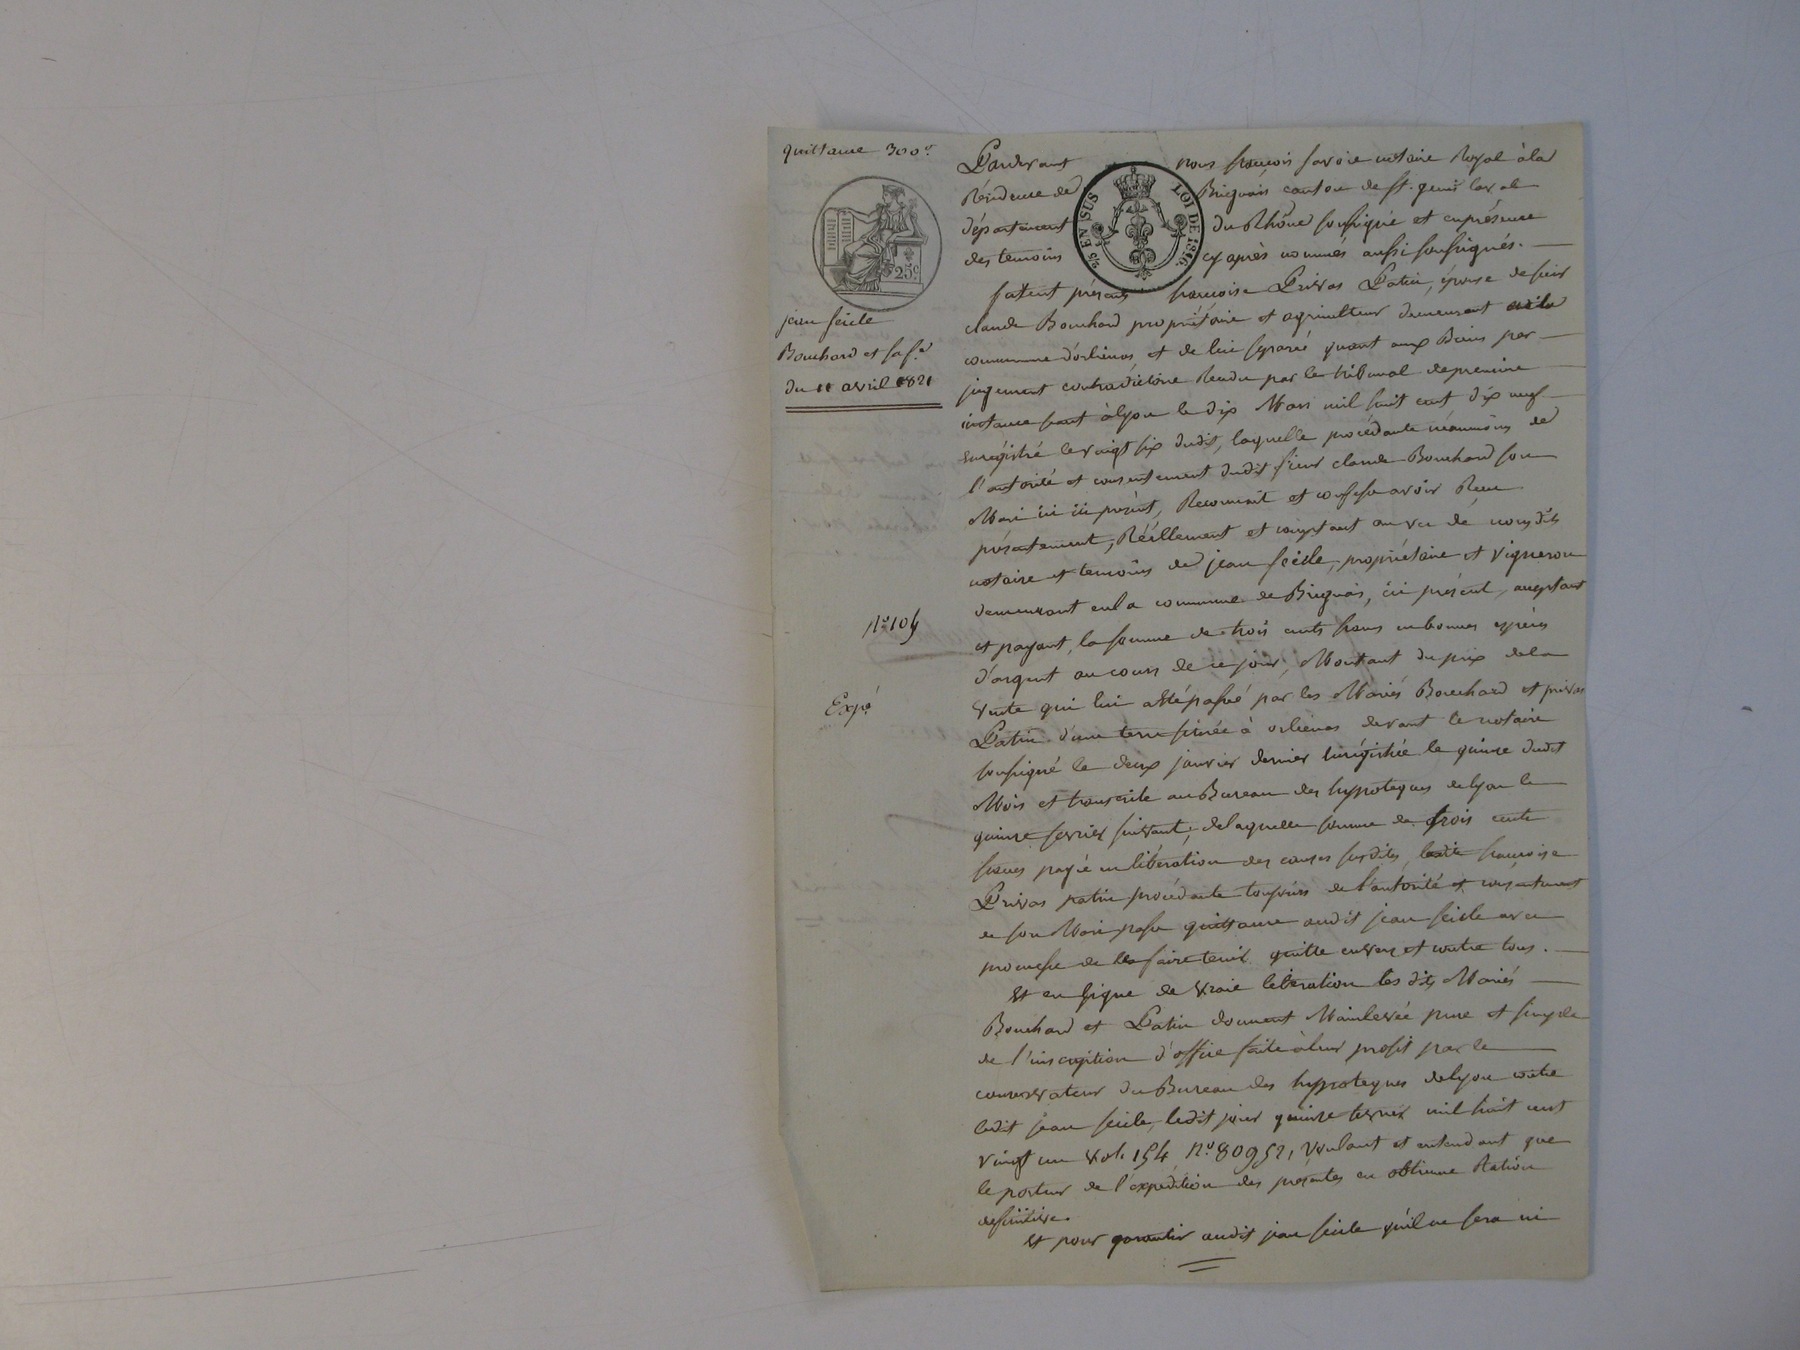 quittance 300 f
25 c
jean feicle
Bouchard et sa fe
du 11 avril 1821
No 105
Expé
25 EN SUS LOI DE 1816.
Pardevant nous françois favoie notaire Royal à la
Résidence de Brignais canton de st. genis laval
département du Rhône soussigné et en présence
des temoins cy après nommés aussi soussignés.
fatent présens françoise Privas Patin, épouse de sieur
claude Bouchard propriétaire et agriculteur demeurant en la
commune d'orlienas et de lui séparée quant aux Biens par
jugement contradictoire Rendu par le tribunal de premiere
instance séant à lyon le dix Mars mil huit cent dix neuf
enrégistré le vingt six dudit, laquelle procédante néanmoins de
l'autorité et consentement dudit sieur claude Bouchard son
Mari ici présent, Reconnait et confesse avoir Reçu
présentement, Réellement et comptant au vu de nousdits
notaire et temoins de jean feicle, propriétaire et vigneron
demeurant en la commune de Brignais, ici présent, acceptant
et payant, la somme de trois cents francs en bonnes espèces
d'argent au cours de ce jour, Montant du prix de la
vente qui lui a été passée par les Mariés Bouchard et privas
Patin d'une terre située à orlienas devant le notaire
soussigné le deux janvier dernier enrégistrée le quinze dudit
Mois et transcrite au Bureau des hypoteques de lyon le
quinze fevrier suivant, de laquelle somme de trois cents
francs payée en libération des causes susdites, ladite françoise
Privas patin procédante toujours de l'autorité et consentement
de son Mari passe quittance audit jean feicle avec
promesse de le faire tenir quitte envers et contre tous.
Et en signe de vraie liberation les dits Mariés
Bouchard et Patin donnent Mainlevée pure et simple
de l'inscription d'office faite à leur profit par le
conservateur du Bureau des hypoteques de lyon contre
ledit jean feicle, ledit jour quinze fevrier mil huit cent
vingt un vol. 154 No 80952, voulant et entendant que
le porteur de l'expédition des présentes en obtienne Ration
definitive.
Et pour garantir audit jean feicle qu'il ne sera ni